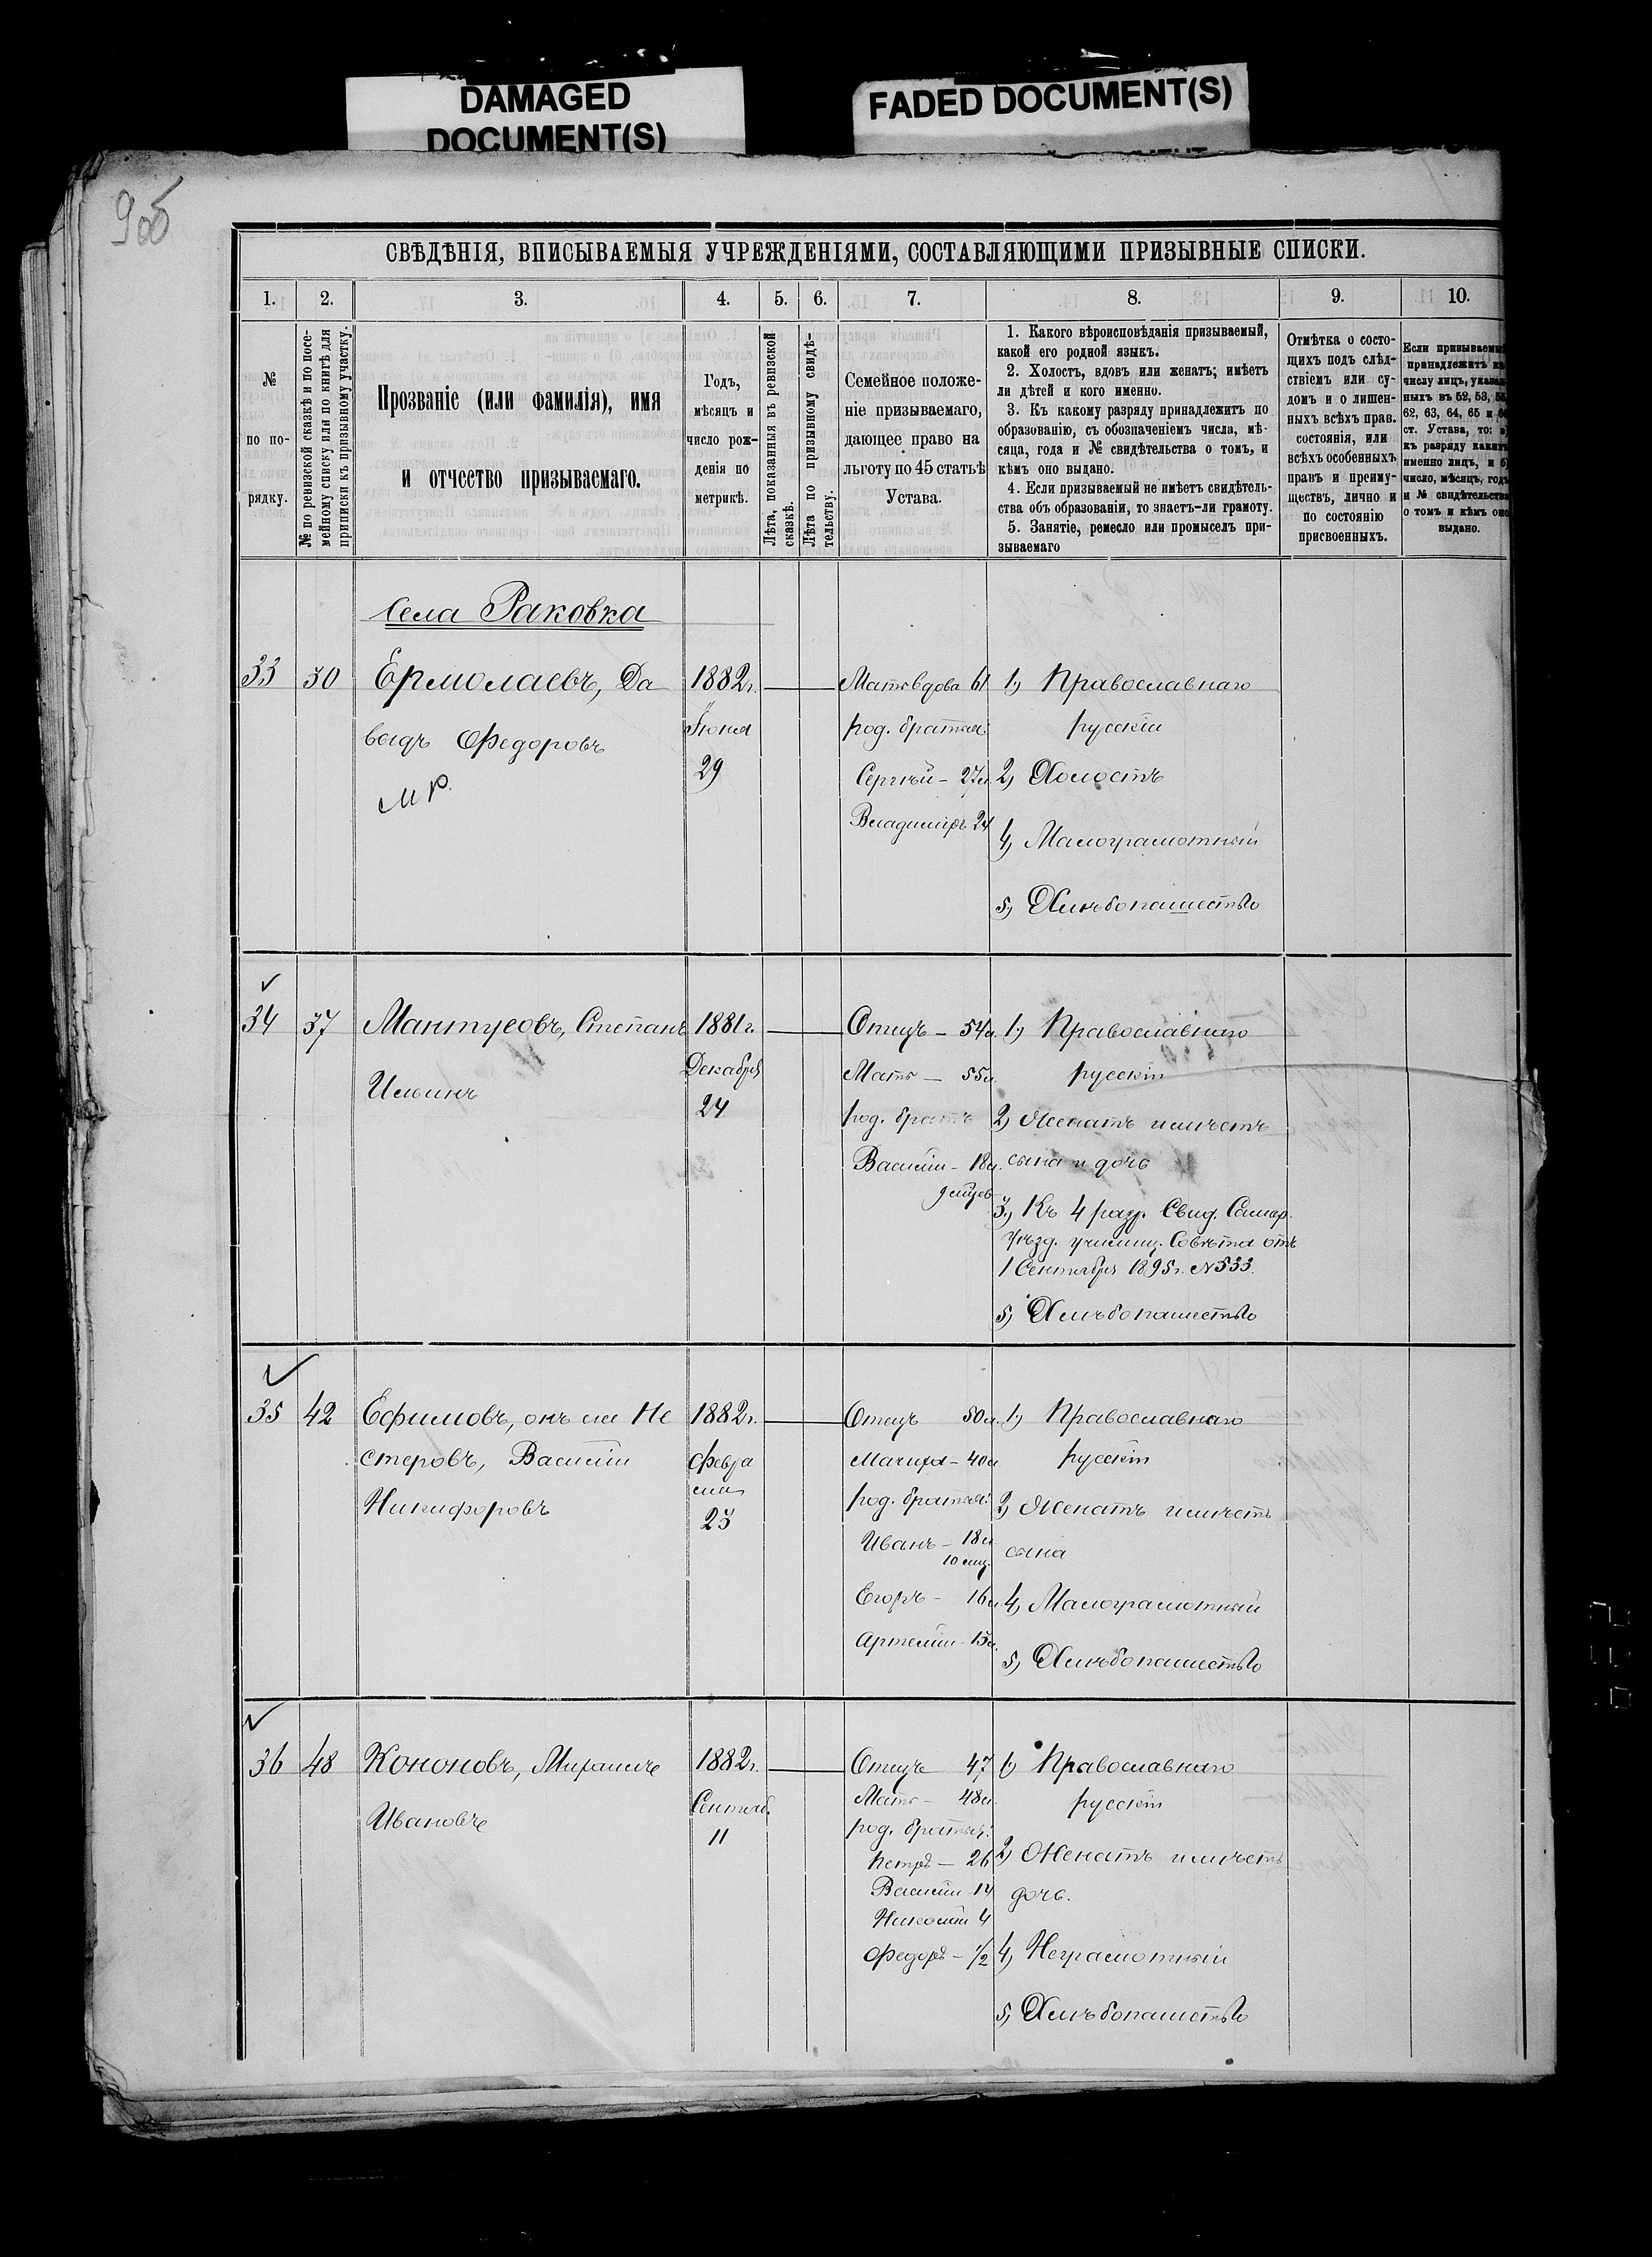 DAMAGED
DOCUMENT(S)
FADED DOCUMENT(S)
9об
СВѢДѢНІЯ, ВПИСЫВАЕМЫЯ УЧРЕЖДЕНІЯМИ, СОСТАВЛЯЮЩИМИ ПРИЗЫВНЫЕ СПИСКИ.
1. 2. 3. 4. 5. 6. 7. 8. 9. 10.
№
по по-
рядку.
№ по ревизской сказкѣ и по посе-
мейному списку или по книгѣ для
приписки къ призывному участку.
Прозваніе (или фамилія), имя
и отчество призываемаго.
Годъ,
мѣсяцъ и
число рож-
денія по
метрикѣ.
Лѣта, показанныя въ ревизской
сказкѣ.
Лѣта по призывному свидѣ-
тельству.
Семейное положе-
ніе призываемаго,
дающее право на
льготу по 45 статьѣ
Устава.
1. Какого вѣроисповѣданія призываемый,
какой его родной языкъ.
2. Холостъ, вдовъ или женатъ; имѣетъ
ли дѣтей и кого именно.
3. Къ какому разряду принадлежитъ по
образованію, съ обозначеніемъ числа, мѣ-
сяца, года и № свидѣтельства о томъ, и
кѣмъ оно выдано.
4. Если призываемый не имѣетъ свидѣтель-
ства объ образованіи, то знаетъ-ли грамоту.
5. Занятіе, ремесло или промыселъ при-
зываемаго
Отмѣтка о состо-
щихъ подъ слѣд-
ствіемъ или су-
домъ и о лишен-
ныхъ всѣхъ прав.
состоянія, или
всѣхъ особенныхъ
правъ и преиму-
ществъ, лично и
по состоянію
присвоенныхъ.
Если призываемый
принадлежитъ къ
числу лицъ, указан
ныхъ въ 52, 53,
62, 63, 64, 65 и
ст. Устава, то:
къ разряду какихъ
именно лицъ, и б)
число, мѣсяцъ, годъ
и № свидѣтельства
о томъ и кѣмъ оно
выдано.
Села Раковка
33 30 Ермолаевъ, Да
выдъ Федоровъ
1882г.
Іюня
29
Мать вдова 61
род. братья:
Сергѣй - 27л.
Владиміръ 24
1) Православнаго
русскій
2) Холостъ
4) Малограмотный
5) Хлѣбопашество
34 37 Мантуровъ, Степанъ
Ильинъ
1881г.
Декабря
24
Отецъ - 54л.
Мать - 55л.
род. братъ
Василій - 18л.
9 мѣсяцев
1) Православнаго
русскій
2) Женатъ имѣетъ
сына и дочь
3) Къ 4 разр. Свид. Самар.
Уѣзд. училищ. Совѣта отъ
1 Сентября 1895г. №533.
5) Хлѣбопашество
35 42 Ефимовъ, онъ же Не
стеровъ, Василій
Никифоровъ
1882г.
Февра
ля
23
Отецъ 50л.
Мачиха - 40л
род. братья:
Иванъ - 18л
10 мѣс.
Егоръ - 16л
Артемій - 13л.
1) Православнаго
русскій
2) Женатъ имѣетъ
сына
4) Малограмотный
5) Хлѣбопашество
36 48 Кононовъ, Михаилъ
Ивановъ
1882г.
Сентяб.
11
Отецъ 47
Мать - 48л.
род. братья:
Петръ - 26
Василій 14
Николай 4
Федоръ - 1/2
1) Православнаго
русскій
2) Женатъ имѣетъ
дочь.
4) Неграмотный
5) Хлѣбопашество